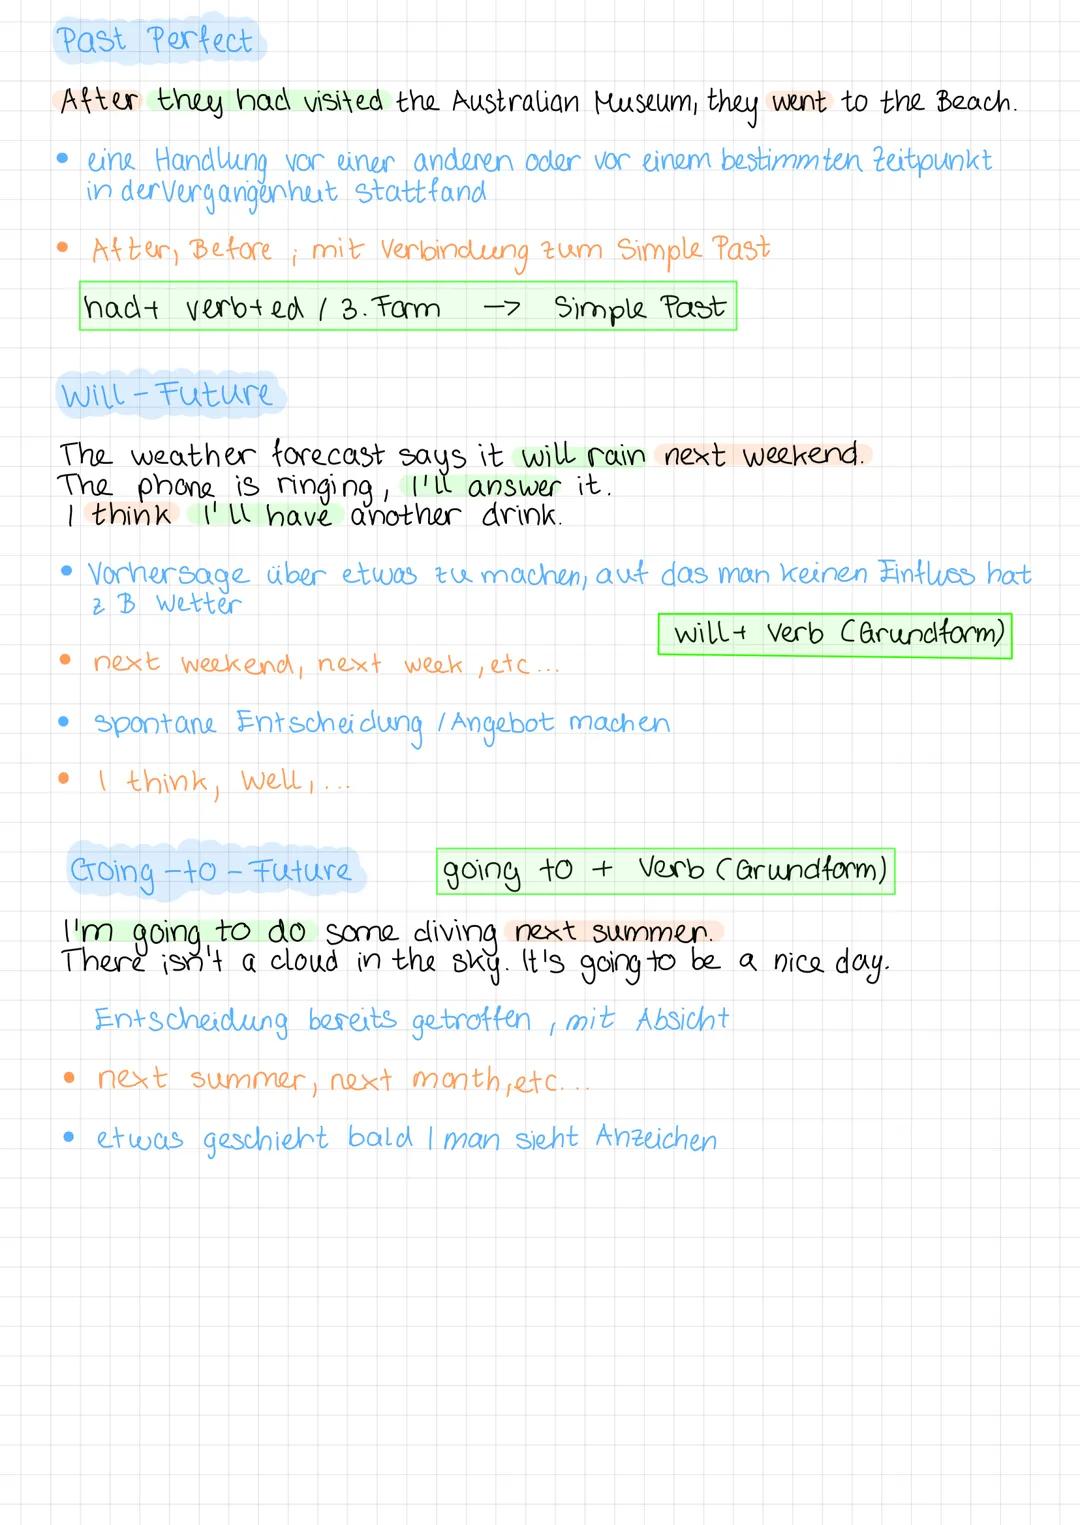 Past Perfect
After they had visited the Australian Museum, they went to the Beach.
• eine Handlung vor einer anderen oder vor einem bestimmten Zeitpunkt
in der Vergangenheit stattfand
• After, Before ; mit Verbindung zum Simple Past
had+ verb+ed / 3. Form -> Simple Past
Will - Future
The weather forecast says it will rain next weekend.
The phone is ringing, I'll answer it.
I think I'll have another drink.
• Vorhersage über etwas zu machen, auf das man keinen Einfluss hat
z B Wetter
will+ Verb (Grundform)
• next weekend, next week, etc...
• spontane Entscheidung / Angebot machen
• I think, Well, ...
Going-to-Future
going to + Verb (Grundform)
I'm going to do some diving next summer.
There isn't a cloud in the sky. It's going to be a nice day.
Entscheidung bereits getroffen, mit Absicht
• next summer, next month, etc...
• etwas geschieht bald / man sieht Anzeichen